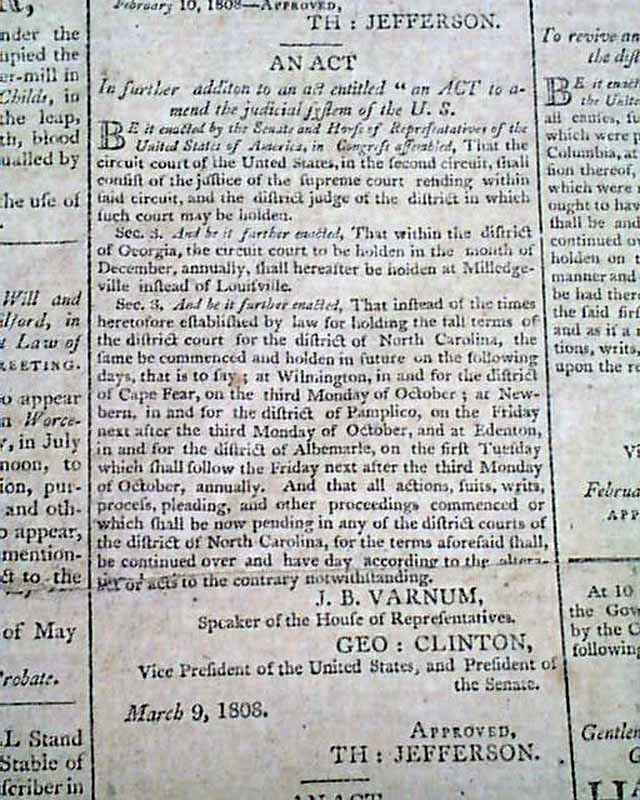 nder the
upied the
er-mill in
Childs, in
the leap,
th, blood
ualled by
he uſe of
Will and
ilford, in
Law of
REETING.
o appear
n Worce-
y, in July
noon, to
ion, pur-
and oth-
o appear,
mention-
ct to the
of May
Probate.
LL Stand
Stable of
ſcriber in
February 10, 1808—APPROVED,
TH : JEFFERSON.
AN ACT
In further additon to an act entitled "an ACT to a-
mend the judicial ſyſtem of the U. S.
BE it enacted by the Senate and Houſe of Repreſentatives of the
United States of America, in Congreſs aſſembled, That the
circuit court of the Unted States, in the second circuit, ſhall
conſiſt of the juſtice of the supreme court reſiding within
ſaid circuit, and the diſtrict judge of the diſtrict in which
ſuch court may be holden.
Sec. 3. And be it further enacted, That within the diſtrict
of Georgia, the circuit court to be holden in the month of
December, annually, ſhall hereafter be holden at Milledge-
ville inſtead of Louiſville.
Sec. 3. And be it further enacted, That inſtead of the times
heretofore eſtabliſhed by law for holding the fall terms of
the diſtrict court for the diſtrict of North Carolina, the
ſame be commenced and holden in future on the following
days, that is to ſay ; at Wilmington, in and for the diſtrict
of Cape Fear, on the third Monday of October ; at New-
bern, in and for the diſtrict of Pamplico, on the Friday
next after the third Monday of October, and at Edenton,
in and for the diſtrict of Albemarle, on the firſt Tueſday
which ſhall follow the Friday next after the third Monday
of October, annually. And that all actions, ſuits, writs,
proceſs, pleading, and other proceedings commenced or
which ſhall be now pending in any of the diſtrict courts of
the diſtrict of North Carolina, for the terms aforeſaid ſhall,
be continued over and have day according to the altera-
or acts to the contrary notwithſtanding.
J. B. VARNUM,
Speaker of the Houſe of Repreſentatives.
GEO : CLINTON,
Vice Preſident of the United States, and Preſident of
the Senate.
March 9, 1808.
APPROVED,
TH : JEFFERSON.
AN ACT
To revive an
the diſt
BE it enact
the Unit
all cauſes, ſu
which were p
Columbia, at
ſion thereof,
which were
ought to hav
ſhall be and
continued o
holden on t
manner and
be had ther
the ſaid firſ
and as if a
tions, writs,
upon the re
Vi
Februa
APP
At 10
the Gov
by the C
following
Gentlem
G
HA